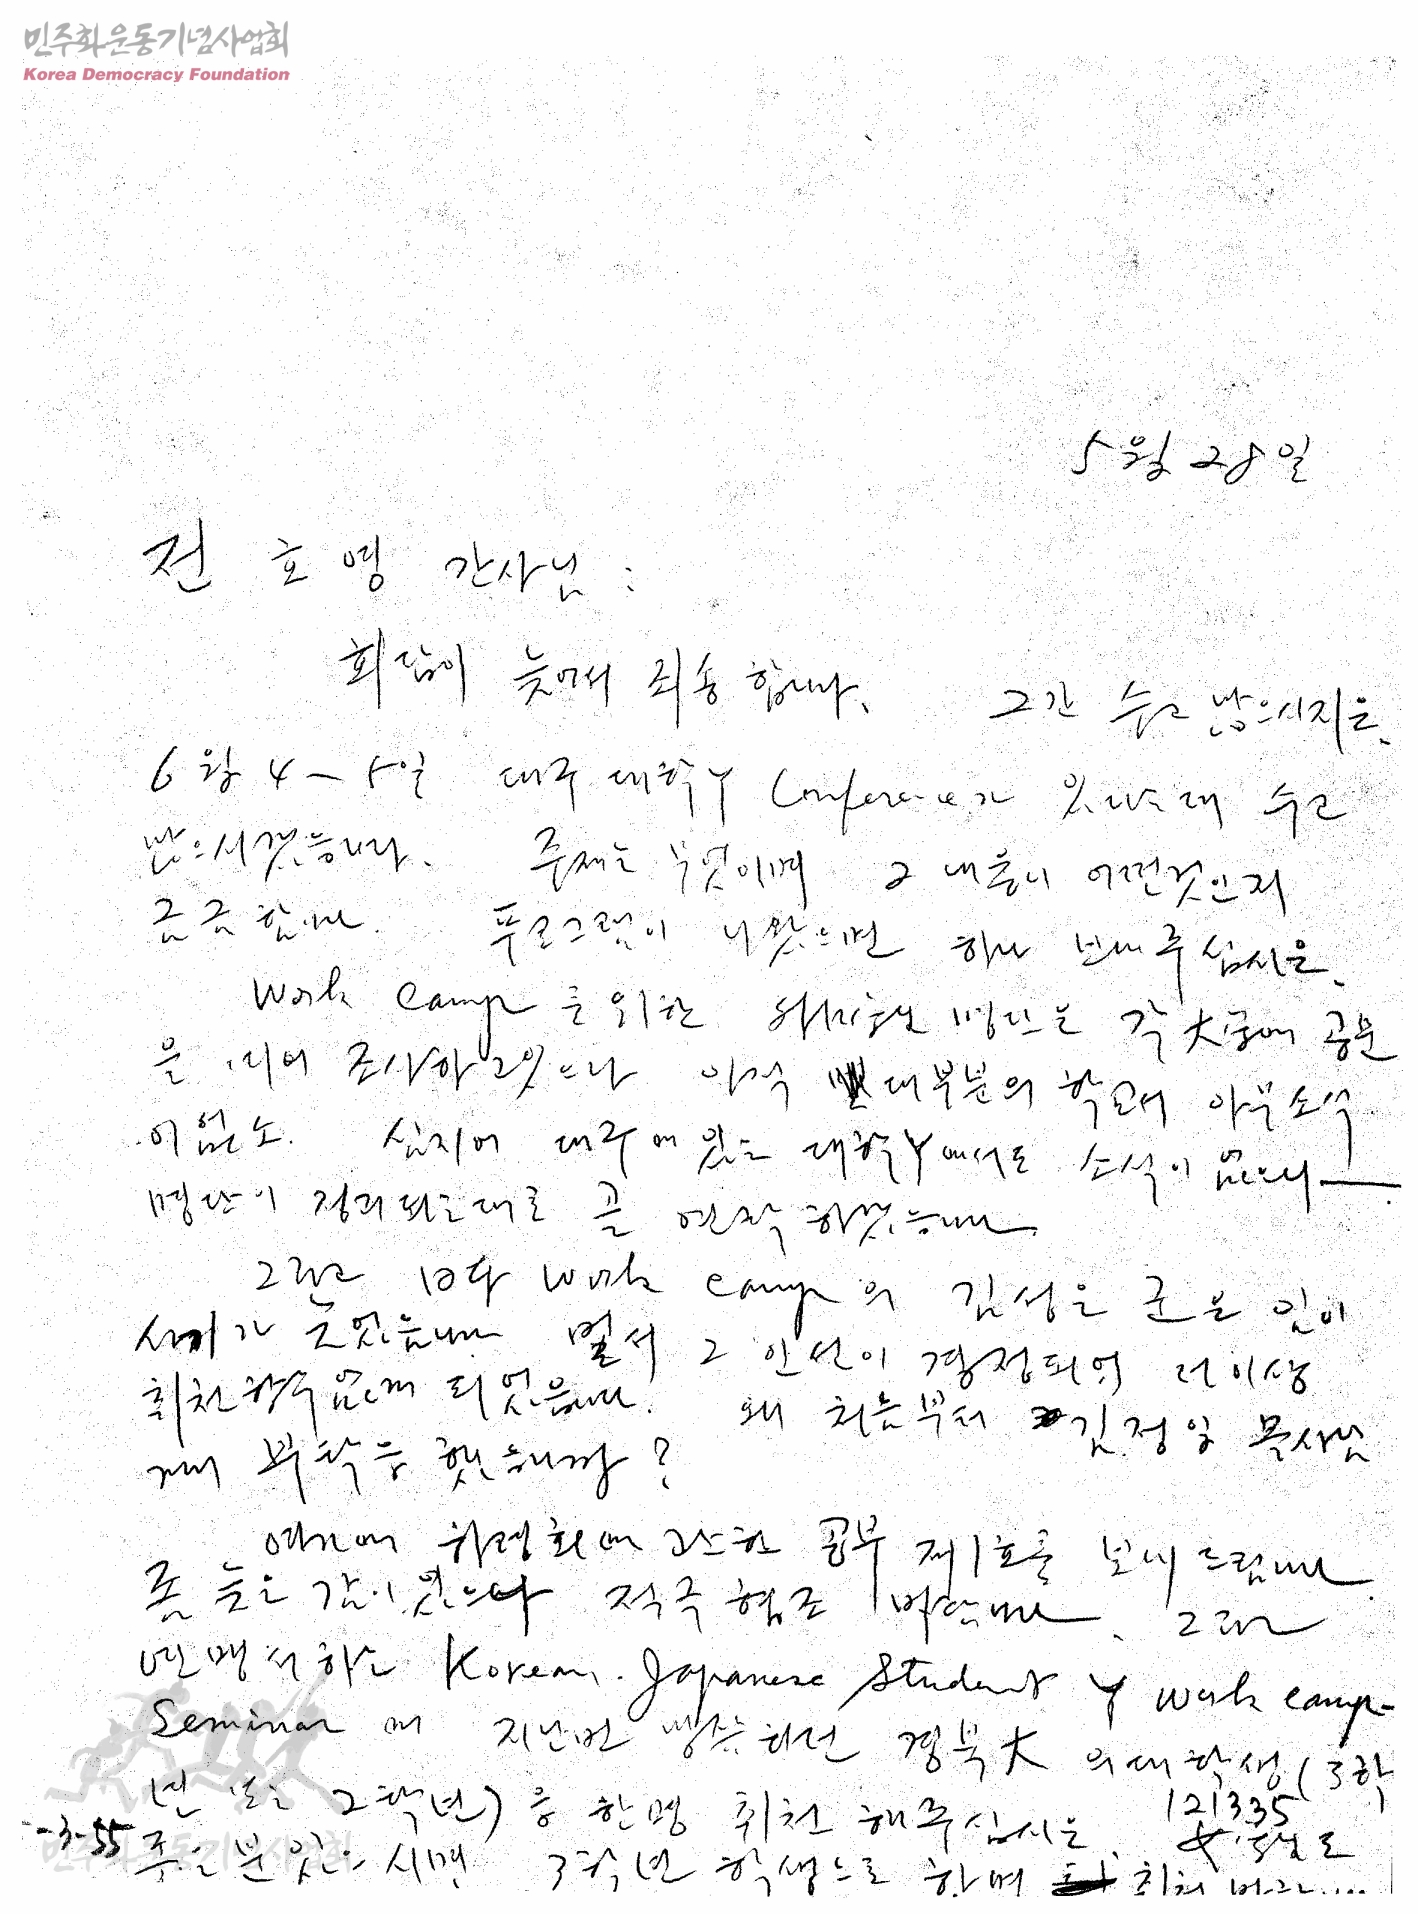 민주화운동기념사업회
Korea Democracy Foundation
5월 28일
전 호 영 간사님 :
회답이 늦어서 죄송합니다. 그간 수고 많으시지요.
6월 4-5일 대구 대학Y Conference가 있다는데 수고
많으시겠습니다. 주제는 무엇이며 그 내용이 어떤것인지
궁금합니다. 푸로그램이 나왔으면 하나 보내주십시요.
Work Camp를 위한 명단은 각 大学에 공문
을 내어 조사하고있으나 아직 대부분의 학교에서 아무소식
이 없오. 심지어 대구에 있는 대학Y에서도 소식이 없으니
명단이 정리되는대로 곧 연락하겠습니다.
그리고 Work Camp의 김성은 군은 임이
시기가 늦었습니다. 벌써 그 인선이 결정되어 더이상
취천할수없게 되었습니다. 왜 처음부터 김정일 목사님
게 부탁을 했습니까?
여기에 하령회에 관한 공부 제1호를 보내드립니다.
좀 늦은 감이있으나 적극 협조 바랍니다. 그리고
연맹서하는 Korean-Japanese Student Y Work Camp-
Seminar에 지난번 말씀하던 경북大 의대 학생(3학
년 또는 2학년)을 한명 취천해주십시요.
좋은분 있으시면 3학년 학생으로 한명
121335
-3-55
민주화운동기념사업회